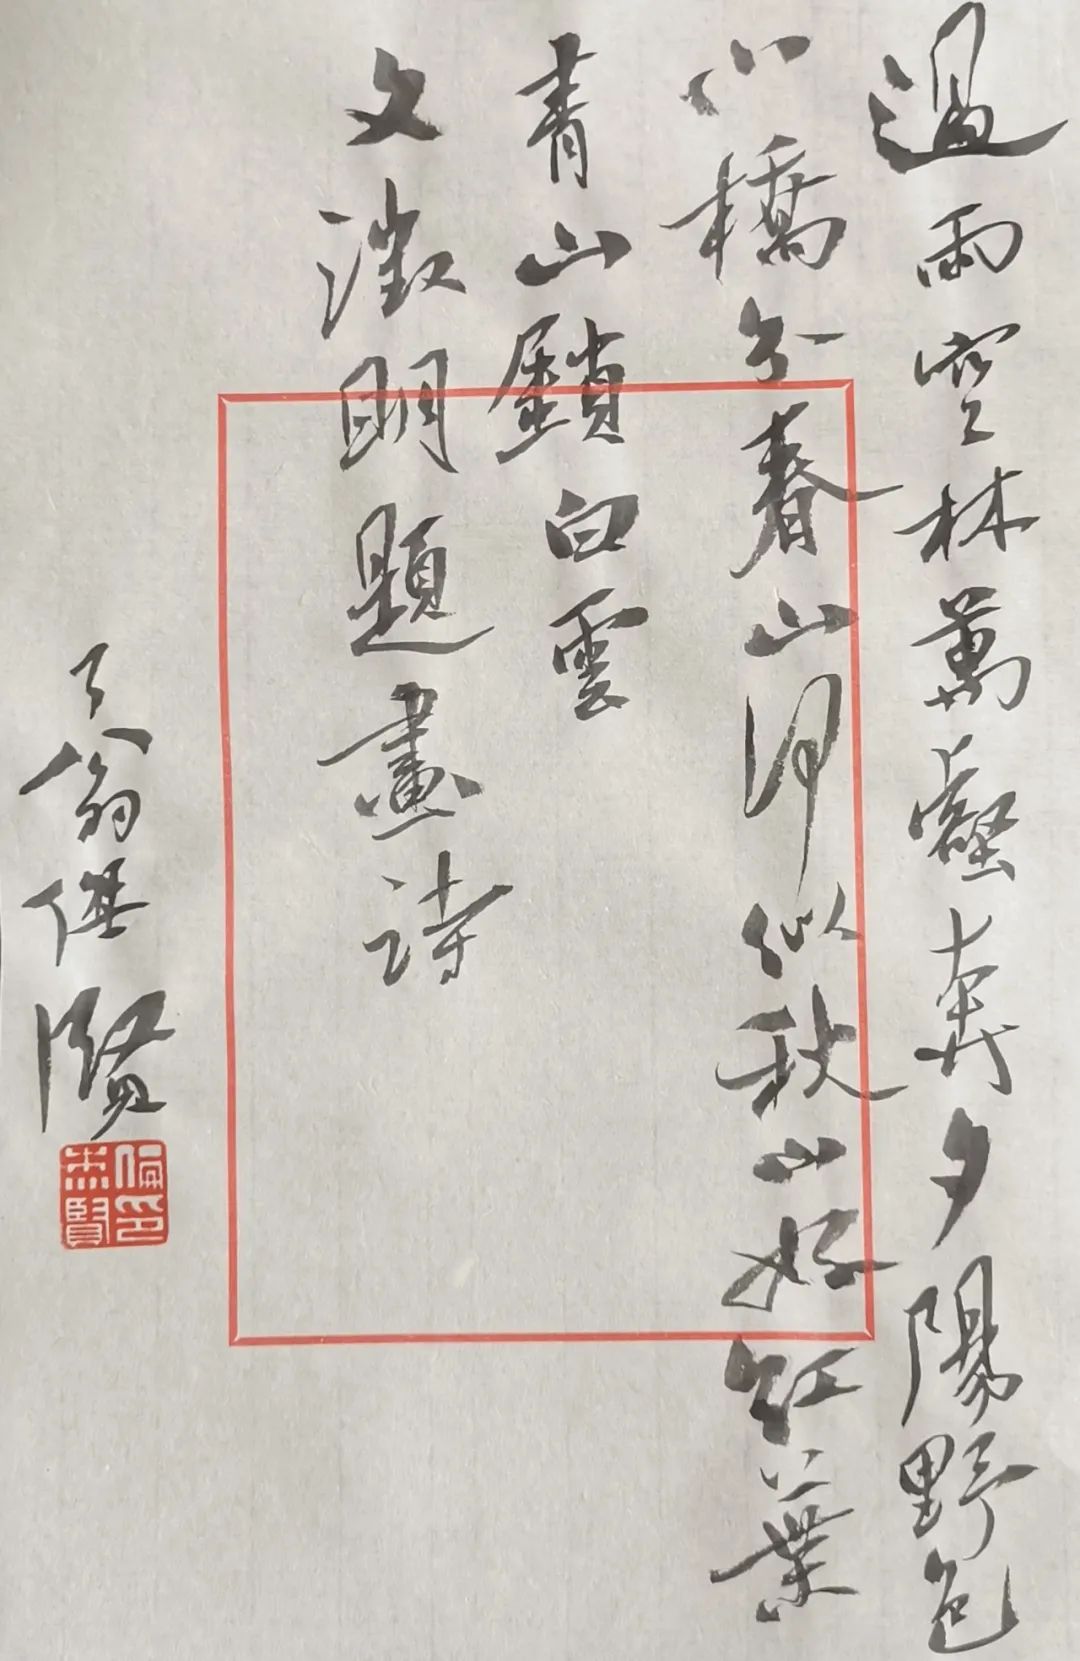 過雨空林萬壑奔夕陽野色
小橋分春山何似秋山好紅葉
青山鎖白雲
文徵明題畫詩
了翁保賢